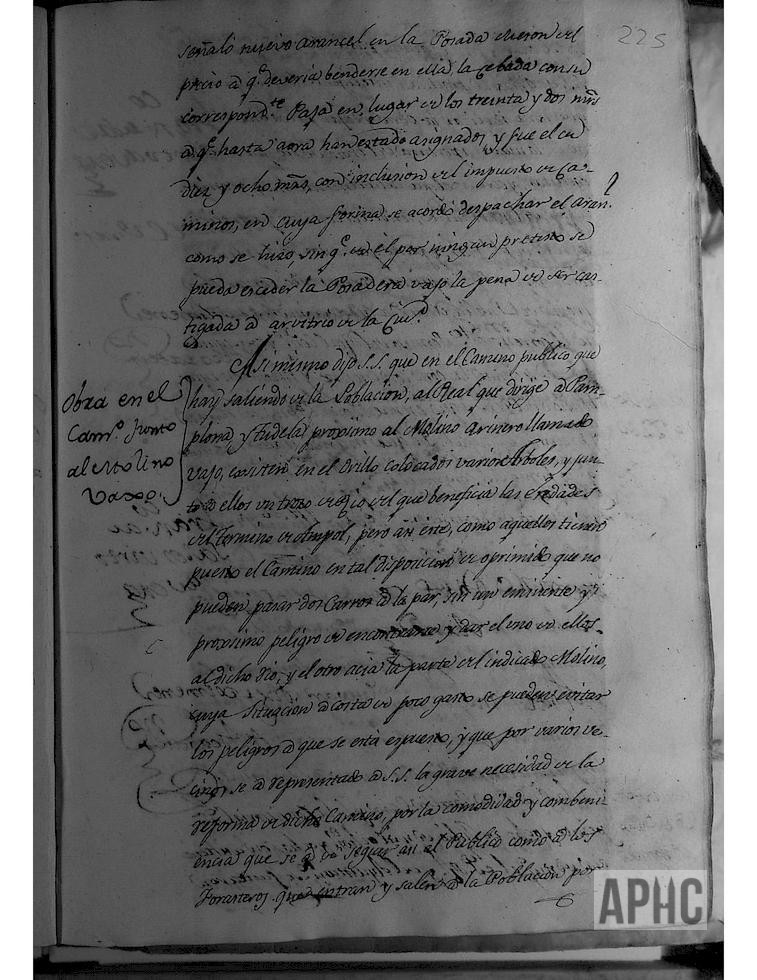 225
señaló nuevo arancel en la Posada
precio a q.e deveria benderse en ella la cebada con su
correspond.te Paja en lugar de los treinta y dos mrs
a q.e hasta aora han estado asignados, y fue el de
diez y ocho mrs, con inclusion del impuesto de Ca-
minos, en cuya forma se acordó despachar el aran.l
como se hizo, sin q.e en él por ningun pretesto se
pueda exceder la Posadera vajo la pena de ser cas-
tigada a arvitrio de la Ciu.d
Asimismo dijo S.S. que en el Camino publico que
hay saliendo de la Poblacion, al Real que dirige a Pam-
plona y Tudela, proximo al Molino arinero llamado
vajo, existen en el Orillo colocados varios Arboles, y jun-
to a ellos un trozo de Rio del que beneficia las Eredades
del Termino de Ampol, pero asi este, como aquellos tienen
puesto el Camino en tal disposicion de oprimido que no
pueden pasar dos Carros a la par, sin un eminente y
proximo peligro de y dar el uno de ellos
al dicho Rio, y el otro acia la parte del indicado Molino,
cuya situacion a costa de poco gasto se pueden evitar
los peligros a que se está expuesto, y que por varios ve-
cinos se a representado a S.S. la grave necesidad de la
reforma de dicho Camino, por la comodidad y combeni-
encia que se a de seguir asi al Publico como a los
Forasteros que entran y salen a la Poblacion por
Obra en el
Cam.o junto
al Molino
Vaxo
APHC